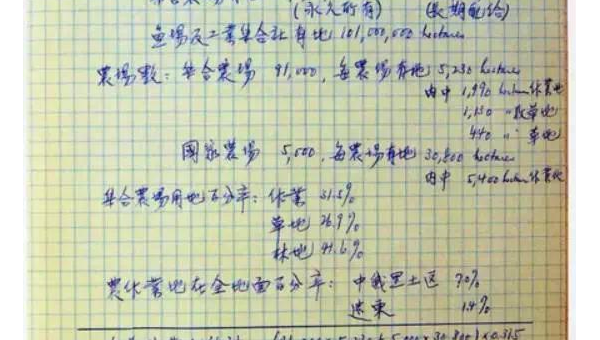 (永久所有) (長期配給)
漁場及工業集合社有地 101,000,000 hectares
農場數: 集合農場 91,000, 每農場有地 5,230 hectares
內中 1,990 hectares作業地
1,150 〃牧草地
440 〃 草地
國家農場 5,000, 每農場有地 30,800 hectares
內中 5,400 hectares作業地
集合農場用地百分率: 作業 31.5%
草地 26.9%
林地 41.6%
農作業地在全地面百分率: 中俄黑土區 70%
遠東 1.4%